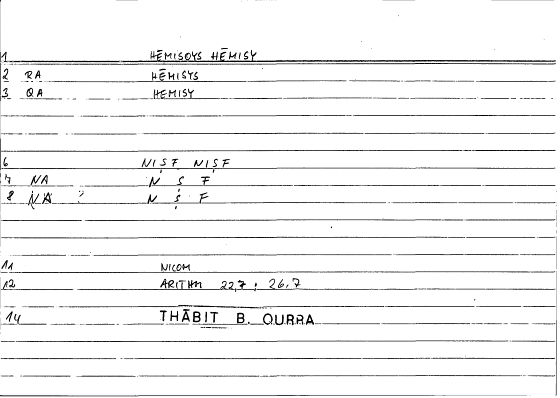 1 HĒMISOYS HĒMISY
2 RA HĒMISYS
3 QA HEMISY
6 NIṢF NIṢF
7 NA N Ṣ F
8 NA ? N Ṣ F
11 NICOM
12 ARITHM 22,7 ; 26,7
14 THĀBIT B. QURRA